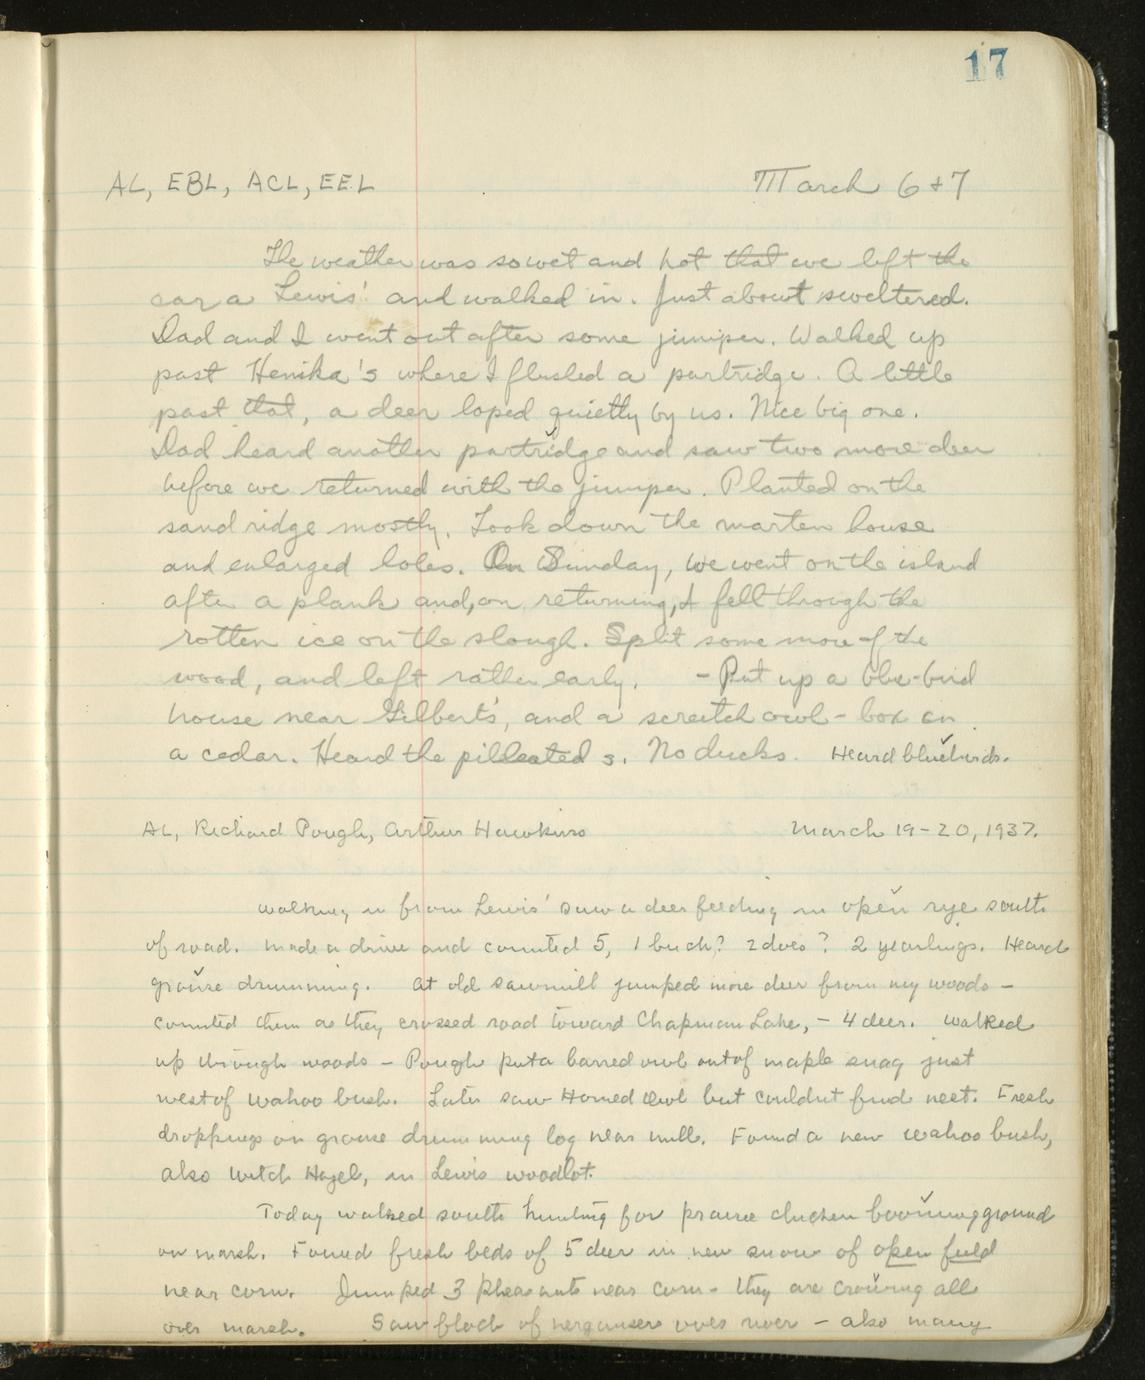 17
AL, EBL, ACL, EEL March 6 & 7
The weather was so wet and hot that we left the
car a Lewis' and walked in. Just about sweltered.
Dad and I went out after some juniper. Walked up
past Henika's where I flushed a partridge. A little
past that, a deer loped quietly by us. Nice big one.
Dad heard another partridge and saw two more deer
before we returned with the juniper. Planted on the
sand ridge mostly. Took down the marten house
and enlarged holes. On Sunday, we went on the island
after a plank and, on returning, I fell through the
rotten ice on the slough. Split some more of the
wood, and left rather early. - Put up a blue-bird
house near Gilbert's, and a screetch owl-box on
a cedar. Heard the pilleated s. No ducks. Heard bluebirds.
AL, Richard Pough, Arthur Hawkins March 19-20, 1937.
Walking in from Lewis' saw a deer feeding in open rye south
of road. Made a drive and counted 5, 1 buck? 2 does? 2 yearlings. Heard
grouse drumming. At old sawmill jumped more deer from my woods -
counted them as they crossed road toward Chapman Lake, - 4 deer. Walked
up through woods - Pough put a barred owl out of maple snag just
west of wahoo bush. Later saw Horned Owl but couldnt find nest. Fresh
droppings on grouse drumming log near mill. Found a new wahoo bush,
also Witch Hazel, in Lewis woodlot.
Today walked south hunting for prairie chicken booming ground
on marsh. Found fresh beds of 5 deer in new snow of open field
near corn. Jumped 3 pheasants near corn - they are crowing all
over marsh. Saw flock of mergansers over river - also many